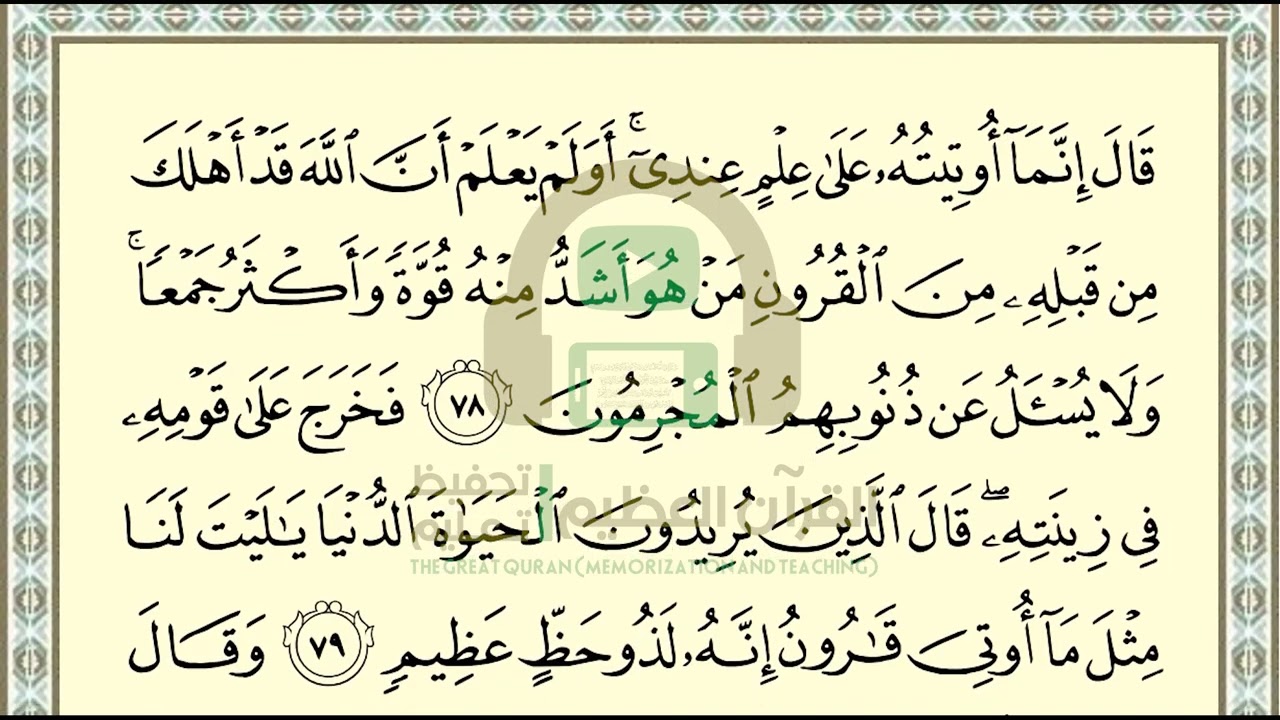 قَالَ إِنَّمَآ أُوتِيتُهُۥ عَلَىٰ عِلْمٍ عِندِىٓ ۚ أَوَلَمْ يَعْلَمْ أَنَّ ٱللَّهَ قَدْ أَهْلَكَ
مِن قَبْلِهِۦ مِنَ ٱلْقُرُونِ مَنْ هُوَ أَشَدُّ مِنْهُ قُوَّةً وَأَكْثَرُ جَمْعًا ۚ
وَلَا يُسْـَٔلُ عَن ذُنُوبِهِمُ ٱلْمُجْرِمُونَ ٧٨ فَخَرَجَ عَلَىٰ قَوْمِهِۦ
فِى زِينَتِهِۦ ۖ قَالَ ٱلَّذِينَ يُرِيدُونَ ٱلْحَيَوٰةَ ٱلدُّنْيَا يَـٰلَيْتَ لَنَا
مِثْلَ مَآ أُوتِىَ قَـٰرُونُ إِنَّهُۥ لَذُو حَظٍّ عَظِيمٍ ٧٩ وَقَالَ
القرآن العظيم | تحفيظ تعليم
THE GREAT QURAN (MEMORIZATION AND TEACHING)